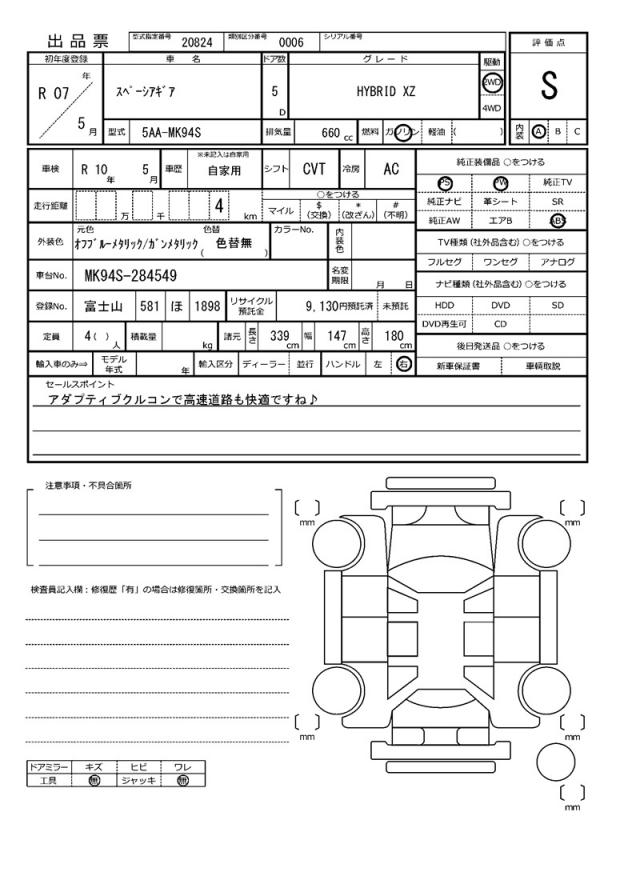 出品票 型式指定番号 20824 類別区分番号 0006 シリアル番号
評価点
S
内装 A B C
初年度登録 車名 ドア数 グレード 駆動
R 07 年 5 月 スペーシアギア 5 D HYBRID XZ 2WD 4WD
型式 5AA-MK94S 排気量 660 cc 燃料 ガソリン 軽油 ( )
車検 R 10 年 5 月 車歴 ※未記入は自家用 自家用 シフト CVT 冷房 AC
走行距離 万 千 4 km ○をつける
マイル $ (交換) * (改ざん) # (不明)
外装色 元色 オフブルーメタリック/ガンメタリック 色替 ( 色替無 ) カラーNo. 内装色
車台No. MK94S-284549 名変期限 月 日
登録No. 富士山 581 ほ 1898 リサイクル預託金 9,130円預託済 未預託
定員 4 ( ) 人 積載量 kg 諸元 長さ 339 cm 幅 147 cm 高さ 180 cm
輸入車のみ⇒ モデル年式 年 輸入区分 ディーラー 並行 ハンドル 左 右
純正装備品 ○をつける
PS PW 純正TV
純正ナビ 革シート SR
純正AW エアB ABS
TV種類 (社外品含む) ○をつける
フルセグ ワンセグ アナログ
ナビ種類 (社外品含む) ○をつける
HDD DVD SD
DVD再生可 CD
後日発送品 ○をつける
新車保証書 車輌取説
セールスポイント
アダプティブクルコンで高速道路も快適ですね♪
注意事項・不具合箇所
検査員記入欄：修復歴「有」の場合は修復箇所・交換箇所を記入
ドアミラー キズ ヒビ ワレ
工具 無 ジャッキ 無
〔 〕 mm
〔 〕 mm
〔 〕 mm
〔 〕 mm
〔 〕 mm